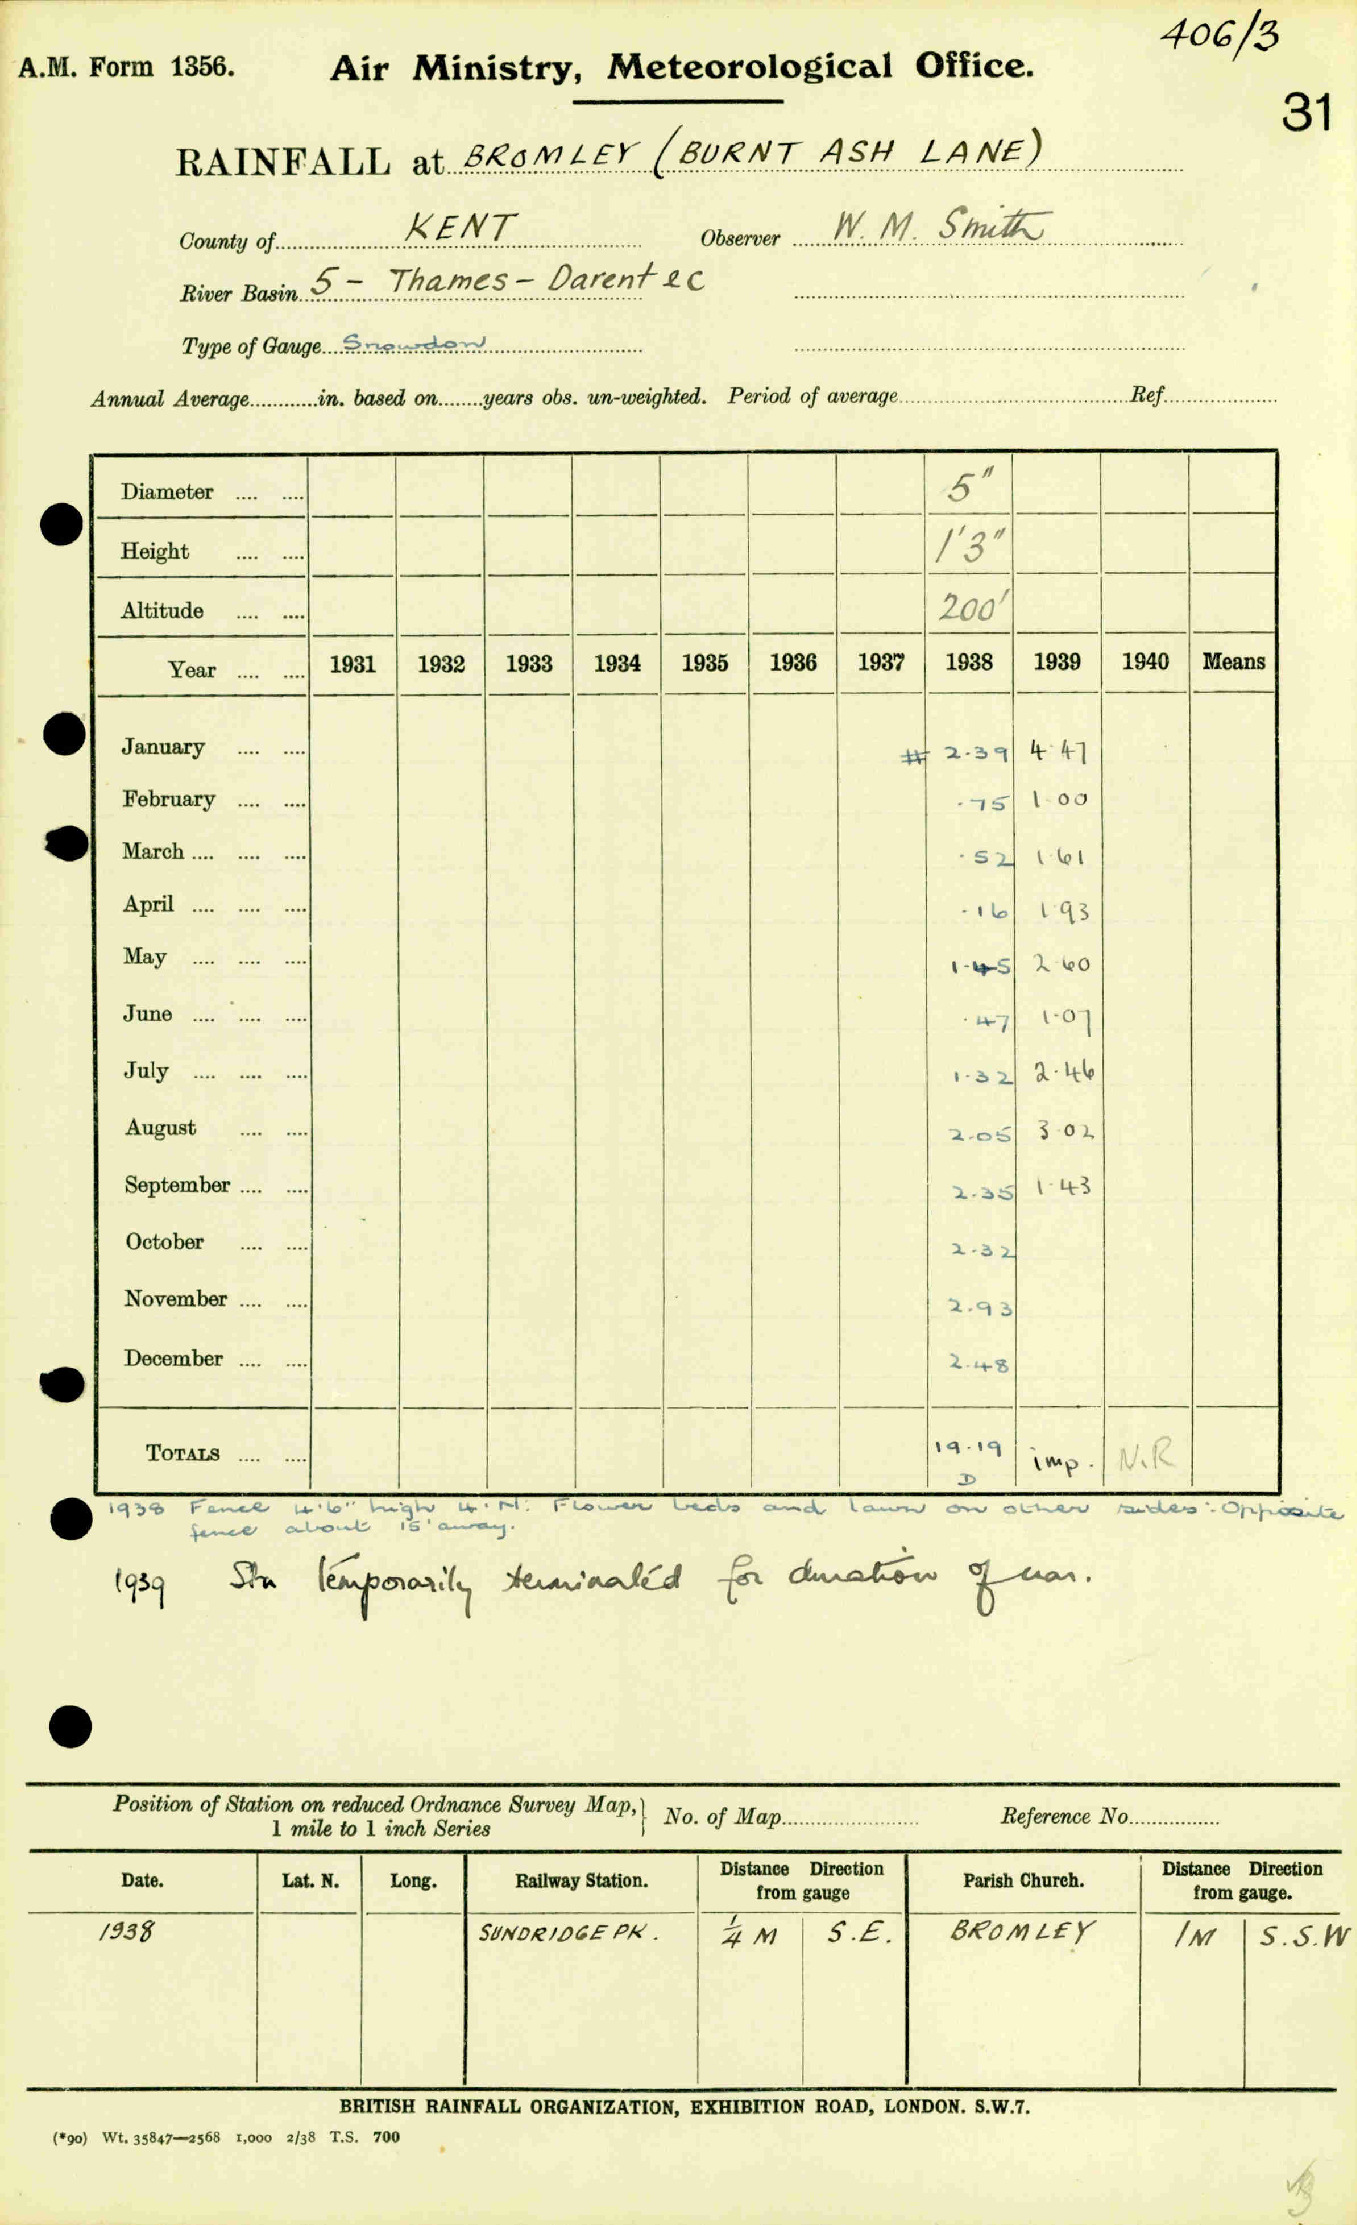 406/3
A.M. Form 1356. Air Ministry, Meteorological Office.
31
RAINFALL at BROMLEY (BURNT ASH LANE)
County of KENT Observer W. M. Smith
River Basin 5 - Thames - Darent &c
Type of Gauge Snowdon
Annual Average in. based on years obs. un-weighted. Period of average Ref.
Diameter 5"
Height 1'3"
Altitude 200'
Year 1931 1932 1933 1934 1935 1936 1937 1938 1939 1940 Means
January # 2.39 4.47
February .75 1.00
March .52 1.61
April .16 1.93
May 1.45 2.60
June .47 1.07
July 1.32 2.46
August 2.05 3.02
September 2.35 1.43
October 2.32
November 2.93
December 2.48
TOTALS 19.19 imp. N.R
D
1938 Fence 4'6" high 4' N: Flower beds and lawn on other sides: Opposite
fence about 15' away.
1939 Stn temporarily terminated for duration of war.
Position of Station on reduced Ordnance Survey Map, No. of Map Reference No.
1 mile to 1 inch Series
Date. Lat. N. Long. Railway Station. Distance Direction from gauge Parish Church. Distance Direction from gauge.
1938 SUNDRIDGE PK. 1/4 M S.E. BROMLEY 1M S.S.W
BRITISH RAINFALL ORGANIZATION, EXHIBITION ROAD, LONDON. S.W.7.
(*90) Wt. 35847—2568 1,000 2/38 T.S. 700